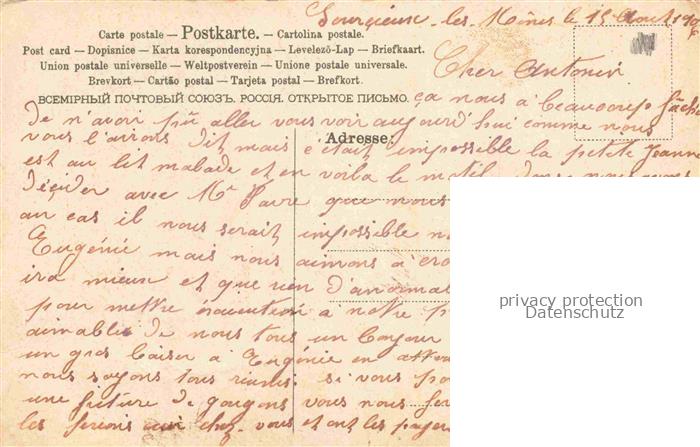 Sourcieux-les-Mines le 15 Aout 190
Carte postale — Postkarte. — Cartolina postale.
Post card — Dopisnice — Karta korespondencyjna — Levelező-Lap — Briefkaart.
Union postale universelle — Weltpostverein — Unione postale universale.
Brevkort — Cartão postal — Tarjeta postal — Brefkort.
ВСЕМІРНЫЙ ПОЧТОВЫЙ СОЮЗЪ. РОССІЯ. ОТКРЫТОЕ ПИСЬМО.
Cher Antonin
ça nous a beaucoup fâché
de n'avoir pû aller vous voir aujourd'hui comme nous
Adresse:
vous l'avions dit mais c'était impossible la petite Jeanne
est au lit malade et en voila le motif
décider avec Mr Favre que nous
au cas il nous serait impossible
Eugénie mais nous aimons à
ira mieux et que rien d'anormal
pour mettre à notre
aimable de nous tous un bonjour
un gros baiser à Eugénie en
nous soyons tous réunis si vous
une friture de goujons vous nous
les ferions cuir chez vous et ont les
privacy protection
Datenschutz